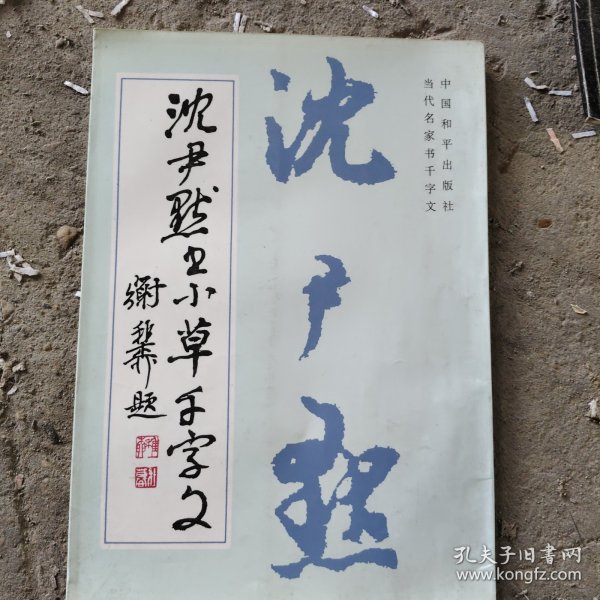 中国和平出版社
当代名家书千字文
沈尹默
沈尹默书小草千字文
题
孔夫子旧书网
www.kongfz.com